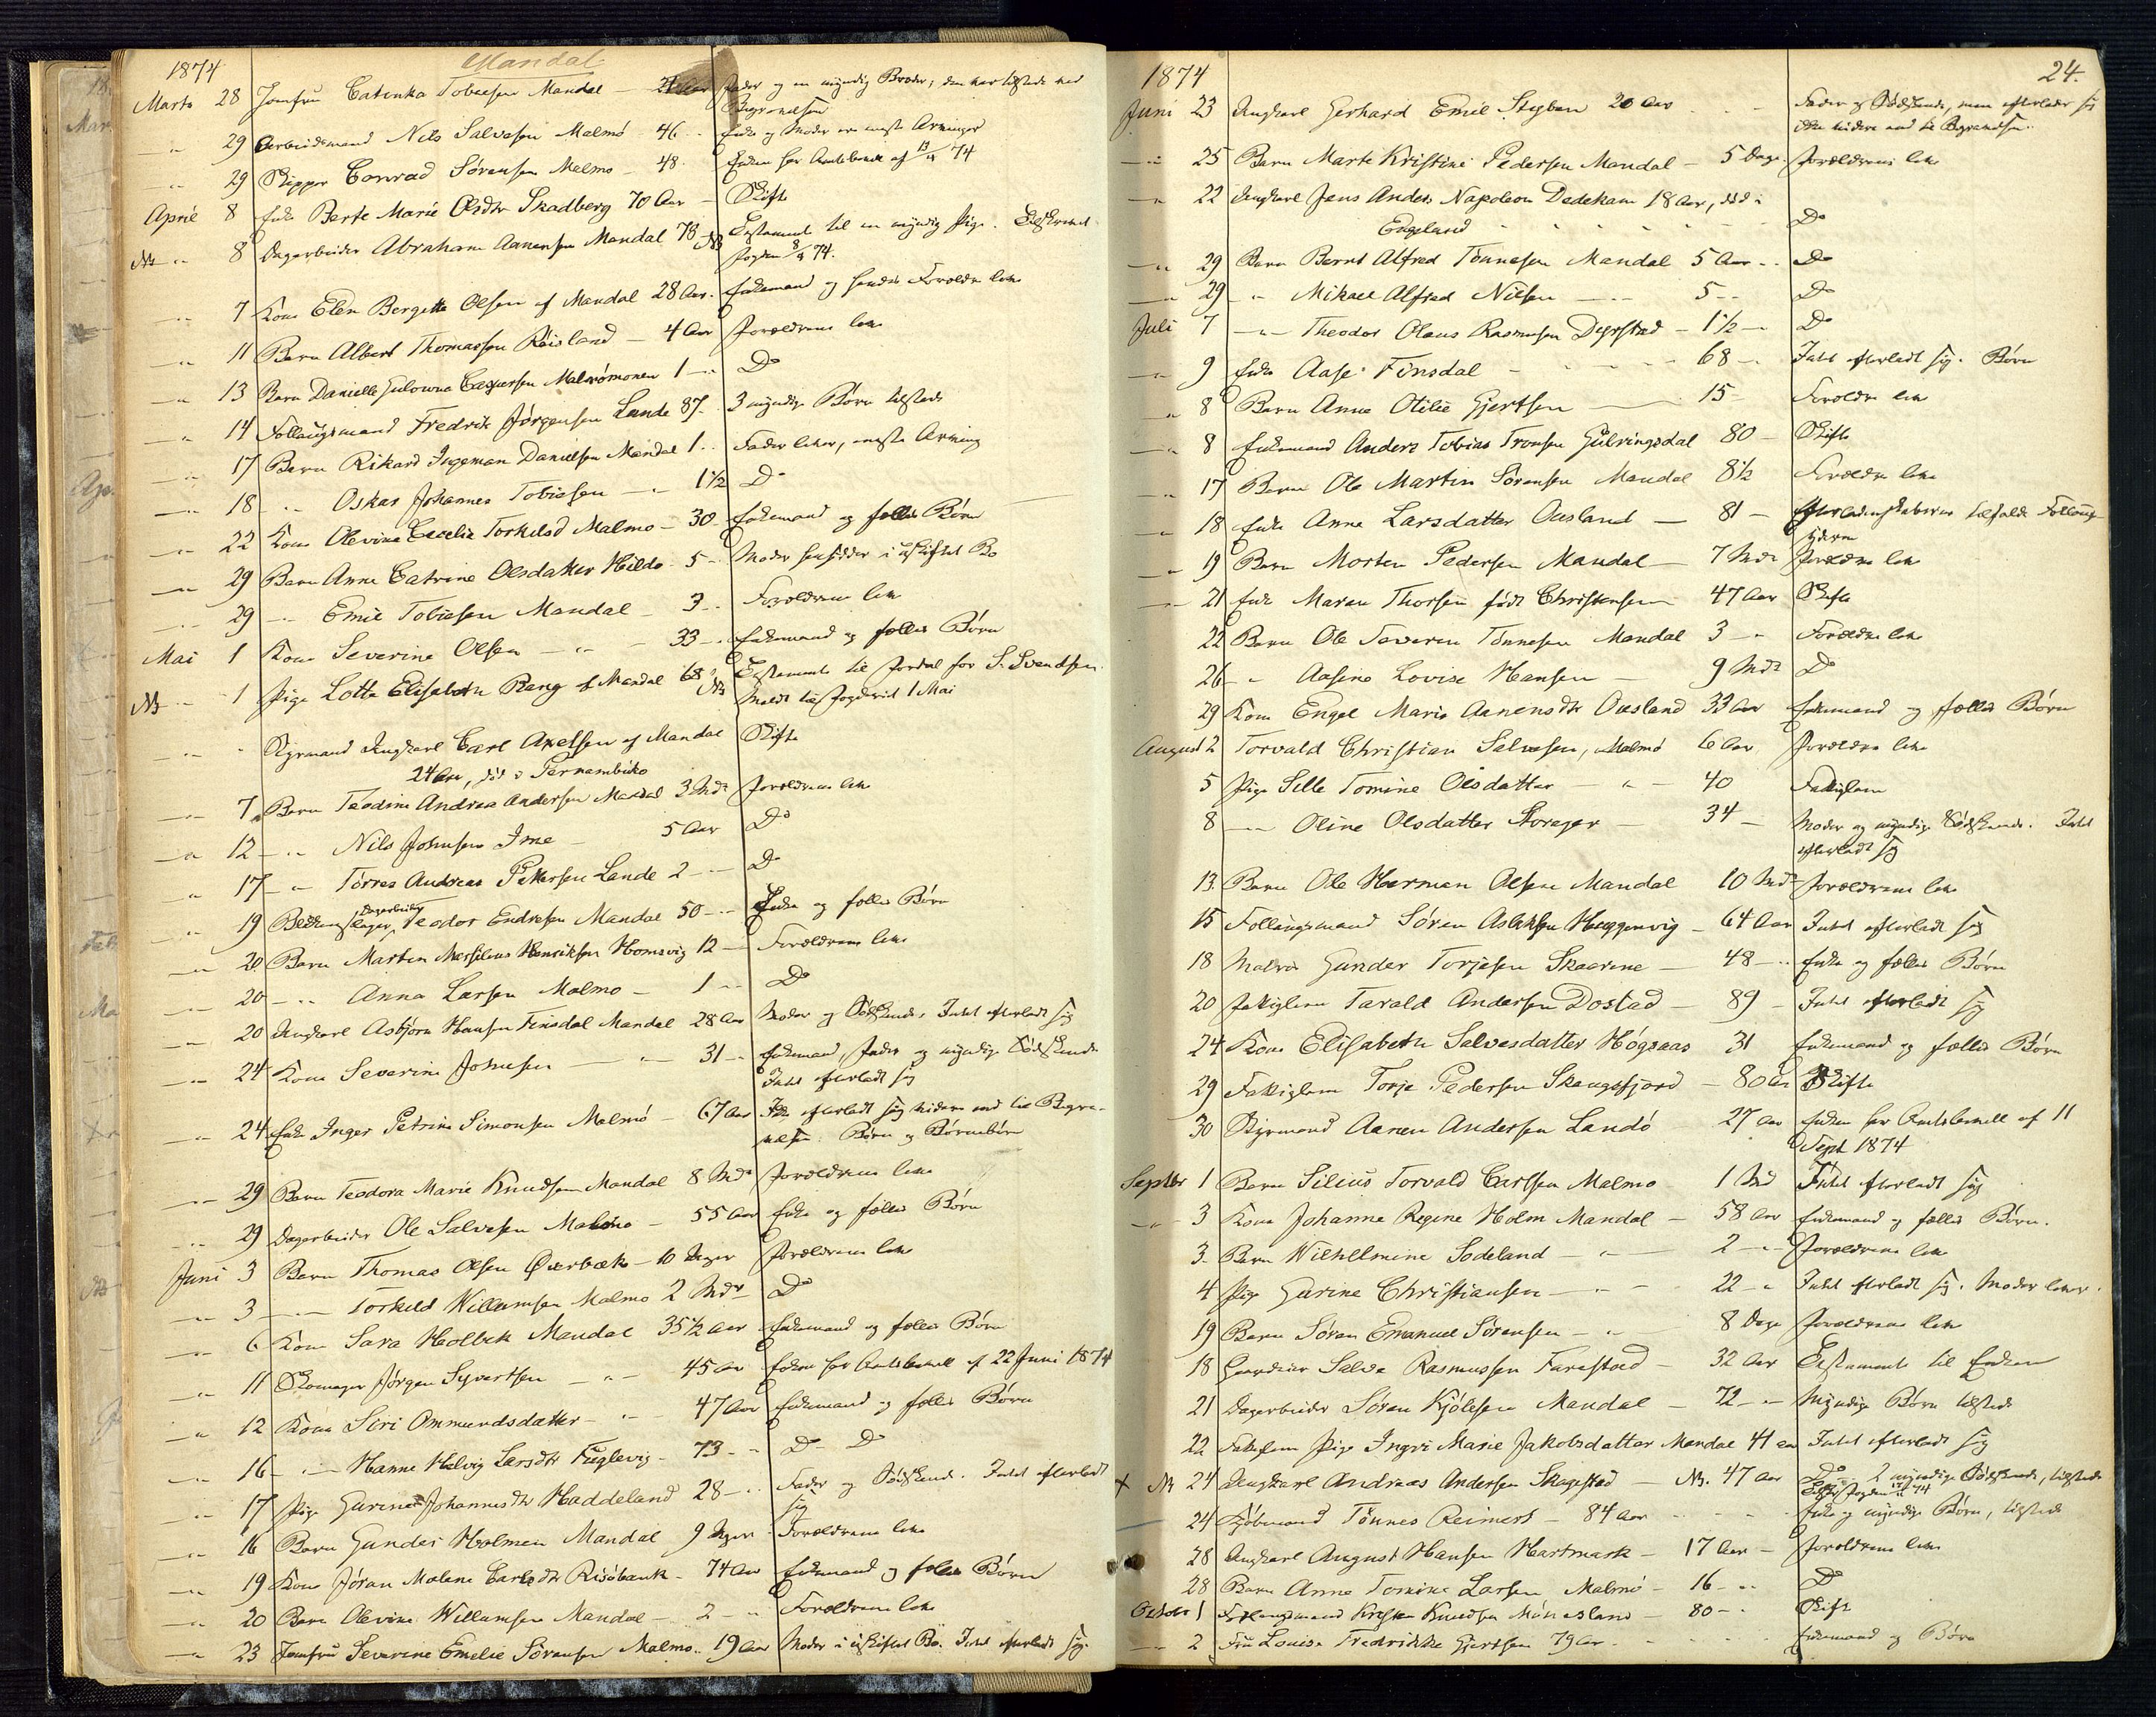 Mandal
1874
Marts 28 Jomfru Catinka Tobiesen Mandal Fader og en myndig Broder, den har tilstede ved
Begravelsen
29 Arbeidsmand Nils Salvesen Malmö 46 Enke og Moder
29 Skipper Conrad Sörensen Malmo 48 Enken har Amtsbevill af 13/4 74
April 8 Enke Berte Marie Olsdtr Skadberg 70 Aar Skifte
NB 8 Dagarbeider Abraham Aanensen Mandal 78 NB Testament til en myndig Pige.
Fogden 8/4 74.
7 Kone Elen Bergitte Olsen af Mandal 28 Aar Enkemand og hendes Foreldre leve
11 Barn Albert Thomassen Röisland 4 Aar Foreldrene leve
13 Barn Danielle Gulowna Caspersen Malmömonen 1 Do
14 Follaugsmand Fredrik Jörgensen Lande 87 3 myndige Börn tilstede
17 Barn Rikard Ingeman Danielsen Mandal 1 Fader lever, eneste Arving
18 Oskar Johannes Tobiesen 1 1/2 Do
22 Kone Olevine Cecelie Torkilsd Malmo 30 Enkemand og felles Börn
29 Barn Anne Catrine Olsdatter Hilde 5 Moder hensidder i uskiftet Bo
29 Emil Tobiesen Mandal 3 Foreldrene leve
Mai 1 Kone Severine Olsen 33 Enkemand og felles Börn
NB 1 Pige Lotte Elisabeth Bang af Mandal 68 NB Testamente til Fordel for S. Svendsen
Meldt til Fogderiet 1 Mai
Styrmand Ungkarl Carl Axelsen af Mandal Skifte
24 Aar, död i Pernambuko
7 Barn Teodine Andrea Andersen Mandal 3 Mdr Foreldrene leve
12 Nils Johnsen Ime 5 Aar Do
17 Torres Andreas Pettersen Lande 2 Do
Dagarbeider
19 Blikkenslager Teodor Endresen Mandal 50 Enke og felles Börn
20 Barn Martin Marsilius Henriksen Homsvig 12 Foreldrene leve
20 Anna Larsen Malmo 1 Do
20 Ungkarl Asbjörn Hansen Finsdal Mandal 28 Aar Moder og Södskende, Intet efterladt sig
24 Kone Severine Johnsen 31 Enkemand, Fader og myndige Södskende
Intet efterladt sig
24 Enke Inger Petrine Simonsen Malmö 67 Aar Ikke efterladt sig videre end til Begra-
velse. Börn og Börnebörn
29 Barn Teodora Marie Knudsen Mandal 8 Mdr Foreldrene leve
29 Dagarbeider Ole Salvesen Malmo 55 Aar Enke og felles Börn
Juni 3 Barn Thomas Olsen Överbæk 10 Dager Foreldrene leve
3 Torkild Willumsen Malmo 2 Mdr Do
6 Kone Sara Holbek Mandal 35 1/2 Aar Enkemand og felles Börn
11 Skomager Jörgen Syvertsen 45 Aar Enken har Amtsbevill af 22 Juni 1874
12 Kone Siri Ommundsdatter 47 Aar Enkemand og felles Börn
16 Hanne Helvig Larsdtr Fuglevig 73 Do Do
17 Pige Gurine Johannesdtr Haddeland 28 Fader og Södskende. Intet efterladt
sig
16 Barn Gunder Holmen Mandal 9 Dager Foreldrene leve
19 Kone Jöran Malene Carlsdtr Risöbank 74 Aar Enkemand og felles Börn
20 Barn Olevine Willumsen Mandal 2 Foreldrene leve
23 Jomfru Severine Emelie Sörensen Malmo 19 Aar Moder i uskiftet Bo. Intet efterladt sig.
1874 24.
Juni 23 Ungkarl Gerhard Emil Stigben 20 Aar Fader og Södskende, men efterlader sig
ikke videre end til Begravelsen.
25 Barn Marte Kristine Pedersen Mandal 5 Dage Foreldrene leve
22 Ungkarl Jens Anders Napoleon Dedekam 18 Aar, död i
Engeland Do
29 Barn Bernt Alfred Tönnesen Mandal 5 Aar Do
29 Mikael Alfred Nilsen 5 Do
Juli 7 Theodor Olaus Rasmusen Dyrstad 1 1/2 Do
9 Enke Aase Finsdal 68 Intet efterladt sig. Börn
8 Barn Anne Otilie Gjertsen 15 Foreldre leve
8 Enkemand Anders Tobias Tronsen Gulvingsdal 80 Skifte
17 Barn Ole Martin Sörensen Mandal 8 1/2 Foreldre leve
18 Enke Anne Larsdatter Ousland 81 Efterladenskaberne tilfaldt Follaug-
yderen
19 Barn Morten Pedersen Mandal 7 Mdr Foreldre leve
21 Enke Maren Thorsen födt Christensen 47 Aar Skifte
22 Barn Ole Severin Tönnesen Mandal 3 Foreldre leve
26 Aasine Lovise Hansen 9 Mdr Do
29 Kone Engel Marie Aanensdtr Ousland 33 Aar Enkemand og felles Börn
August 2 Torvald Christian Salvesen, Malmö 6 Aar Foreldre leve
5 Pige Sille Tomine Olsdatter 40 Fattiglem
8 Oline Olsdatter Storager 34 Moder og myndige Södskende. Intet
efterladt sig
13 Barn Ole Herman Olsen Mandal 10 Mdr Foreldrene leve
15 Follaugsmand Sören Aslaksen Heggenvig 64 Aar Intet efterladt sig
18 Matros Gunder Torjesen Skaarene 48 Enke og felles Börn
20 Fattiglem Tarald Andersen Dostad 89 Intet efterladt sig
24 Kone Elisabeth Salvesdatter Högsaas 31 Enkemand og felles Börn
29 Fattiglem Torje Pedersen Skougsfjord 80 Aar Skifte
30 Styrmand Aanen Andersen Landö 27 Aar Enken har Amtsbevill af 11
Sept 1874
Septbr 1 Barn Silius Torvald Carlsen Malmo 1 Md Intet efterladt sig
3 Kone Johanne Regine Holm Mandal 58 Aar Enkemand og felles Börn.
3 Barn Wilhelmine Sodeland 2 Foreldrene leve
4 Pige Gurine Christiansen 22 Intet efterladt sig. Moder lever.
19 Barn Sören Emanuel Sörensen 8 Dage Foreldrene leve
18 Gaardeier Salve Rasmussen Farestad 32 Aar Testamente til Enken
21 Dagarbeider Sören Kjölesen Mandal 72 Myndige Börn tilstede
22 Fattiglem Pige Ingri Marie Jakobsdatter Mandal 41 Aar Intet efterladt sig
x NB 24 Ungkarl Andreas Andersen Skagestad NB. 47 Aar Do 2 myndige Södskende, tilstede
24 Kjöbmand Tönnes Reimers 84 Aar Enke og myndige Börn, tilstede
28 Ungkarl August Hansen Hartmark 17 Aar Foreldrene leve
28 Barn Anne Tomine Larsen Malmö 16 Do
October 1 Follaugsmand Kristen Knudsen Mönnesland 80 Skift
2 Fru Louise Fredrikke Gjertsen 79 Aar Enkemand og Börn